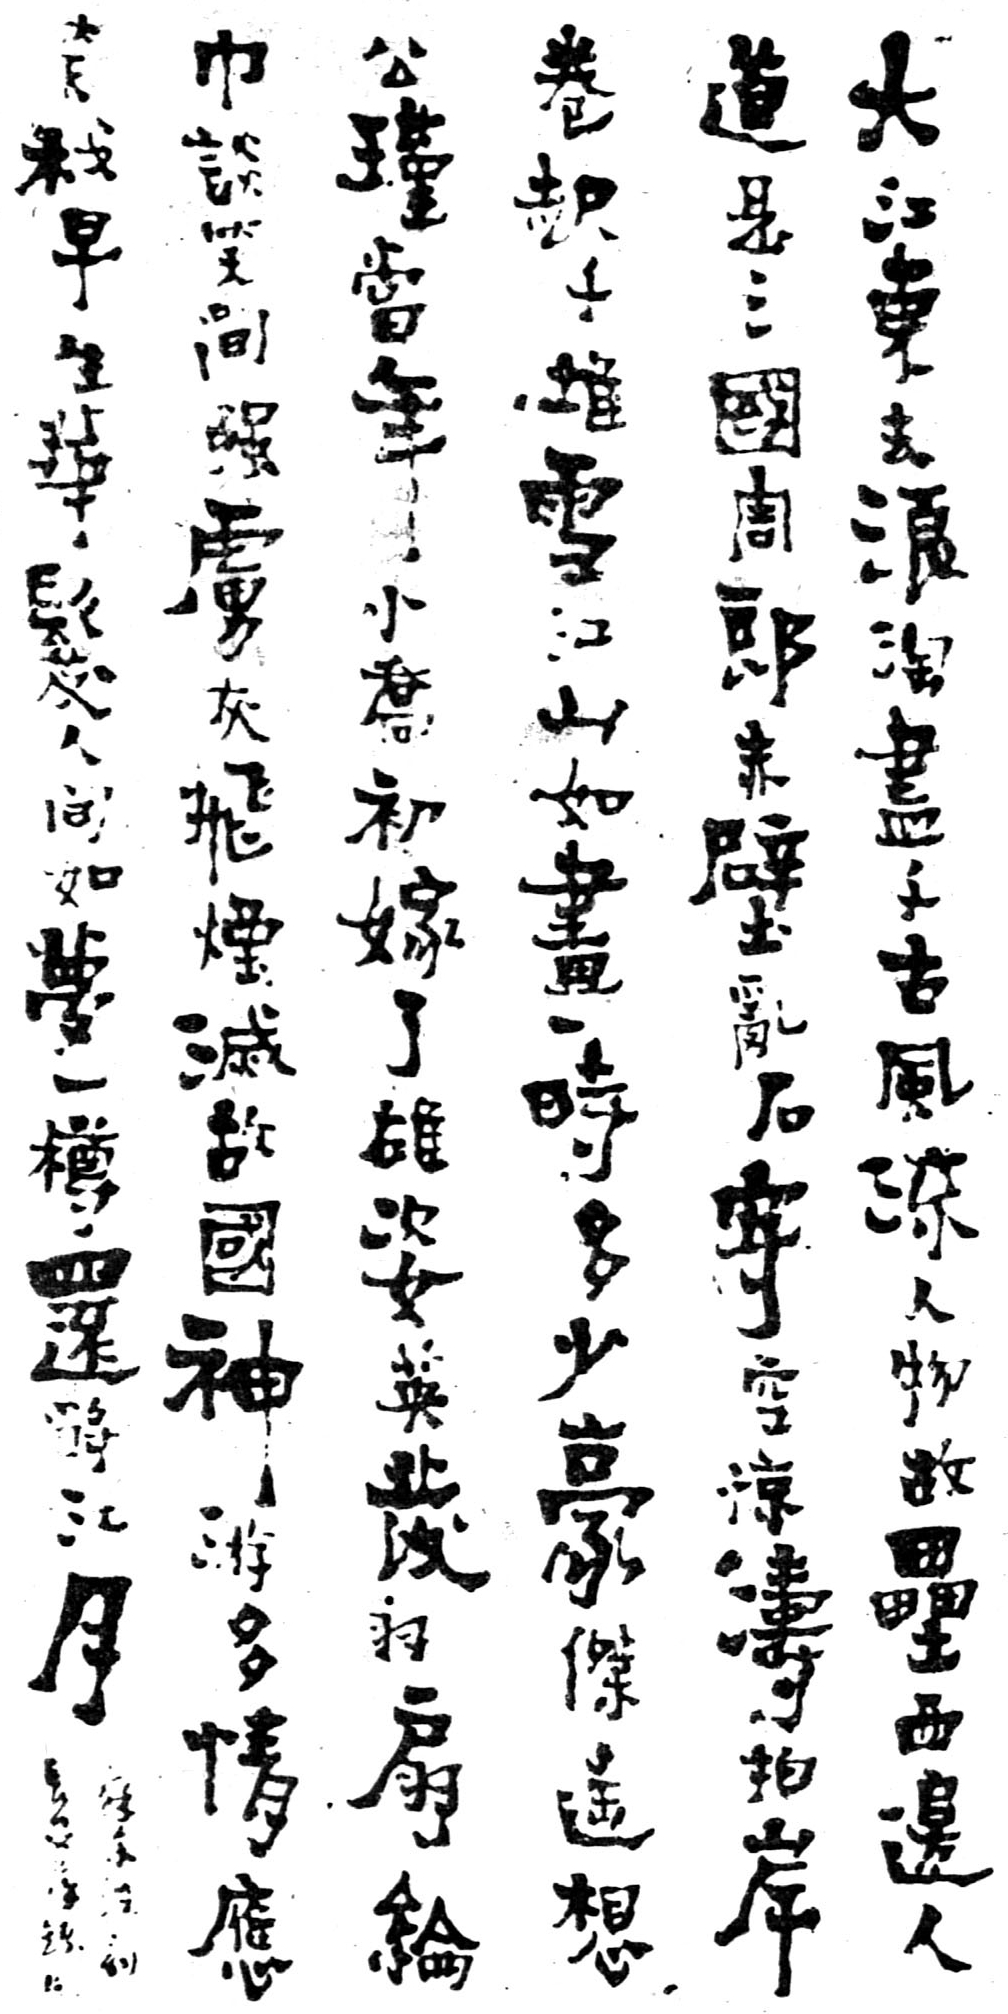 大江東去浪淘盡千古風流人物故壘西邊人
道是三國周郎赤壁亂石穿空涼濤拍岸
卷起千堆雪江山如畫一時多少豪傑遙想
公瑾當年小喬初嫁了雄姿英發羽扇綸
巾談笑間強虜灰飛煙滅故國神游多情應
笑我早生華髮人間如夢一樽還酹江月